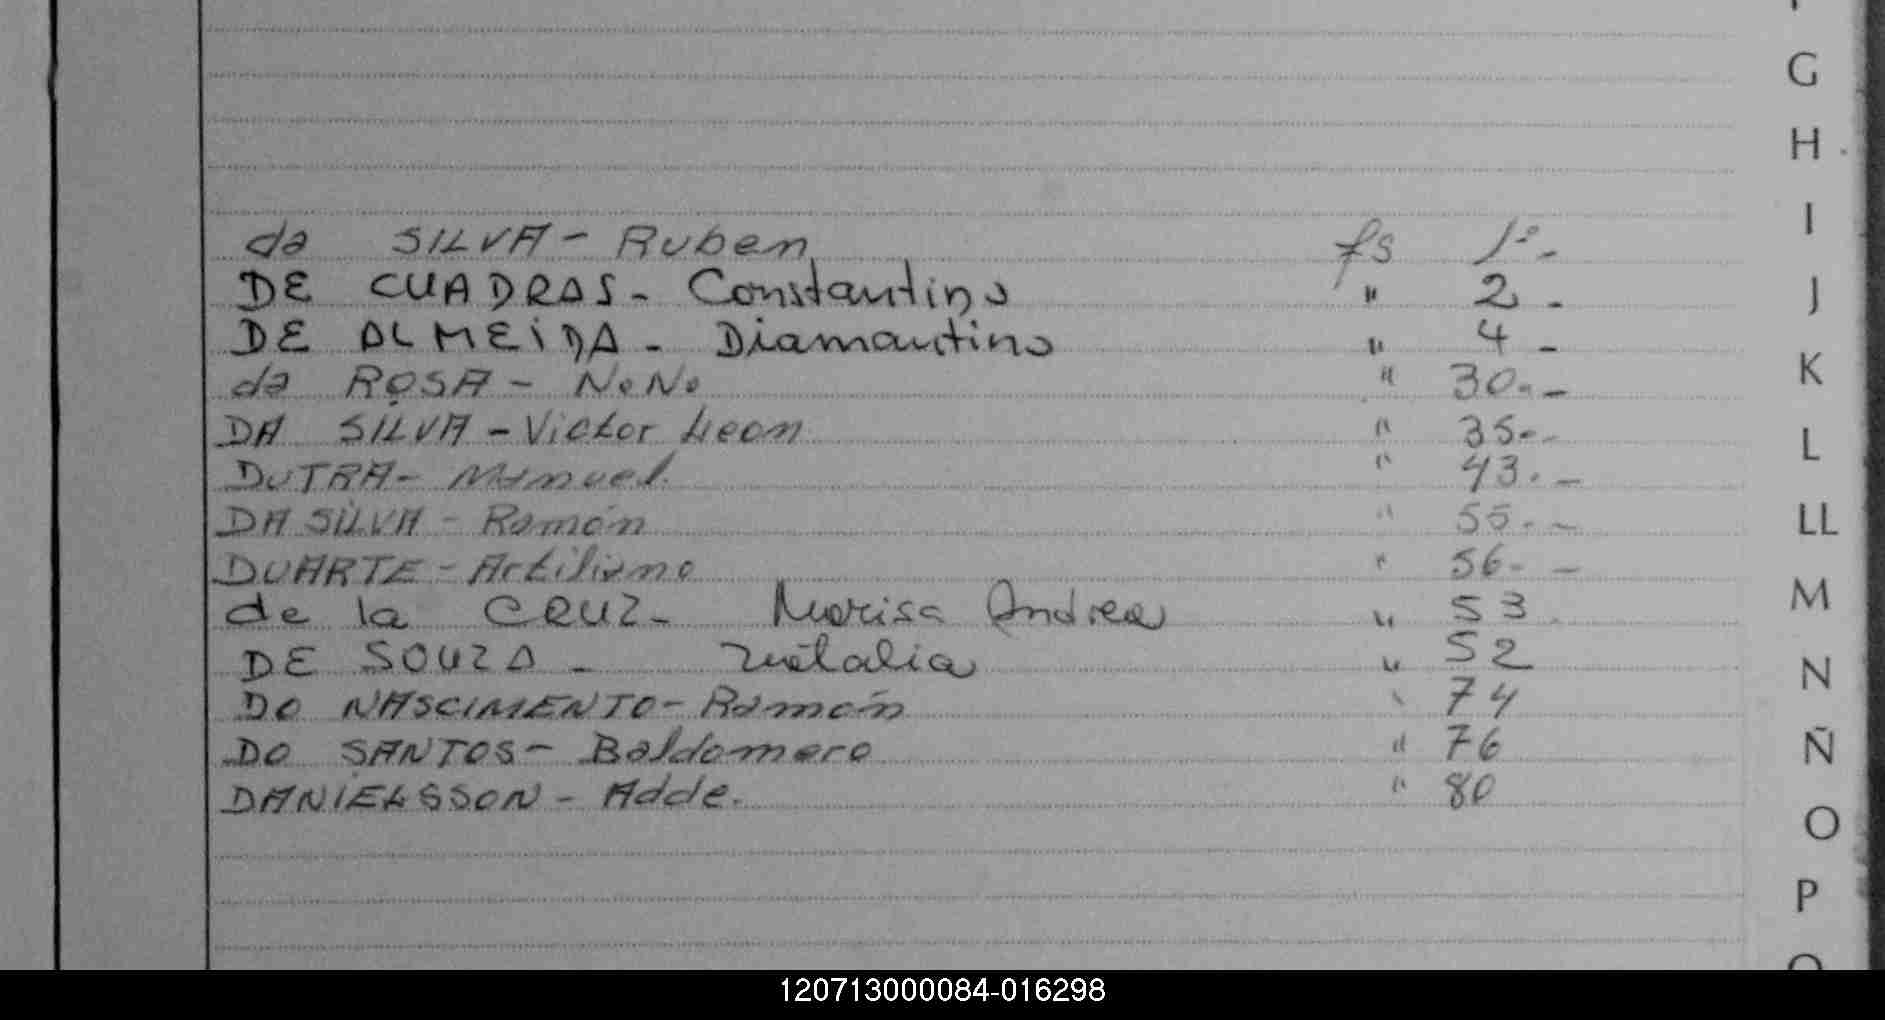 da SILVA - Ruben fs 1º-
DE CUADROS - Constantino " 2 -
DE ALMEIDA - Diamantino " 4 -
da ROSA - NeNe " 30.-
DA SILVA - Victor Leon " 35.-
DUTRA - Manuel. " 43.-
DA SILVA - Ramón " 55.-
DUARTE - " 56.-
de la CRUZ - Marisa Andrea " 53
DE SOUZA - Natalia " 52
DO NASCIMENTO - Ramón " 74
DO SANTOS - Baldomero " 76
DANIELSSON - Adde. " 80
G
H
I
J
K
L
LL
M
N
Ñ
O
P
120713000084-016298